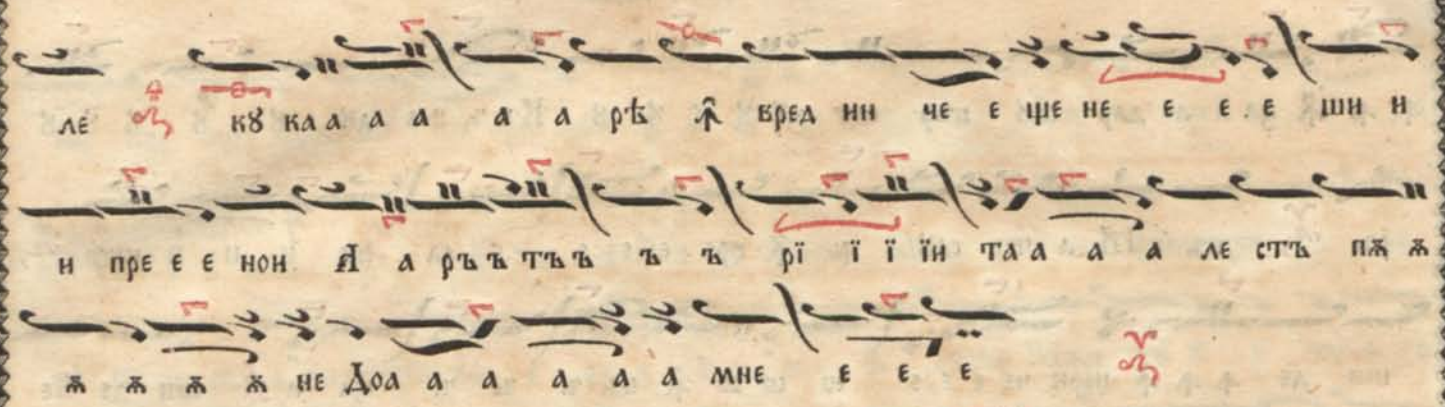 ле кꙋ ка а а а а а рѣ ꙟ вред ни че е ще не е е е ши и
и пре е е нои Ꙗ а ръ ъ тъ ъ ъ ъ рї ї ї їи та а а а ле стъ пѫ ѫ
ѫ ѫ ѫ ѫ не Доа а а а а а мне е е е